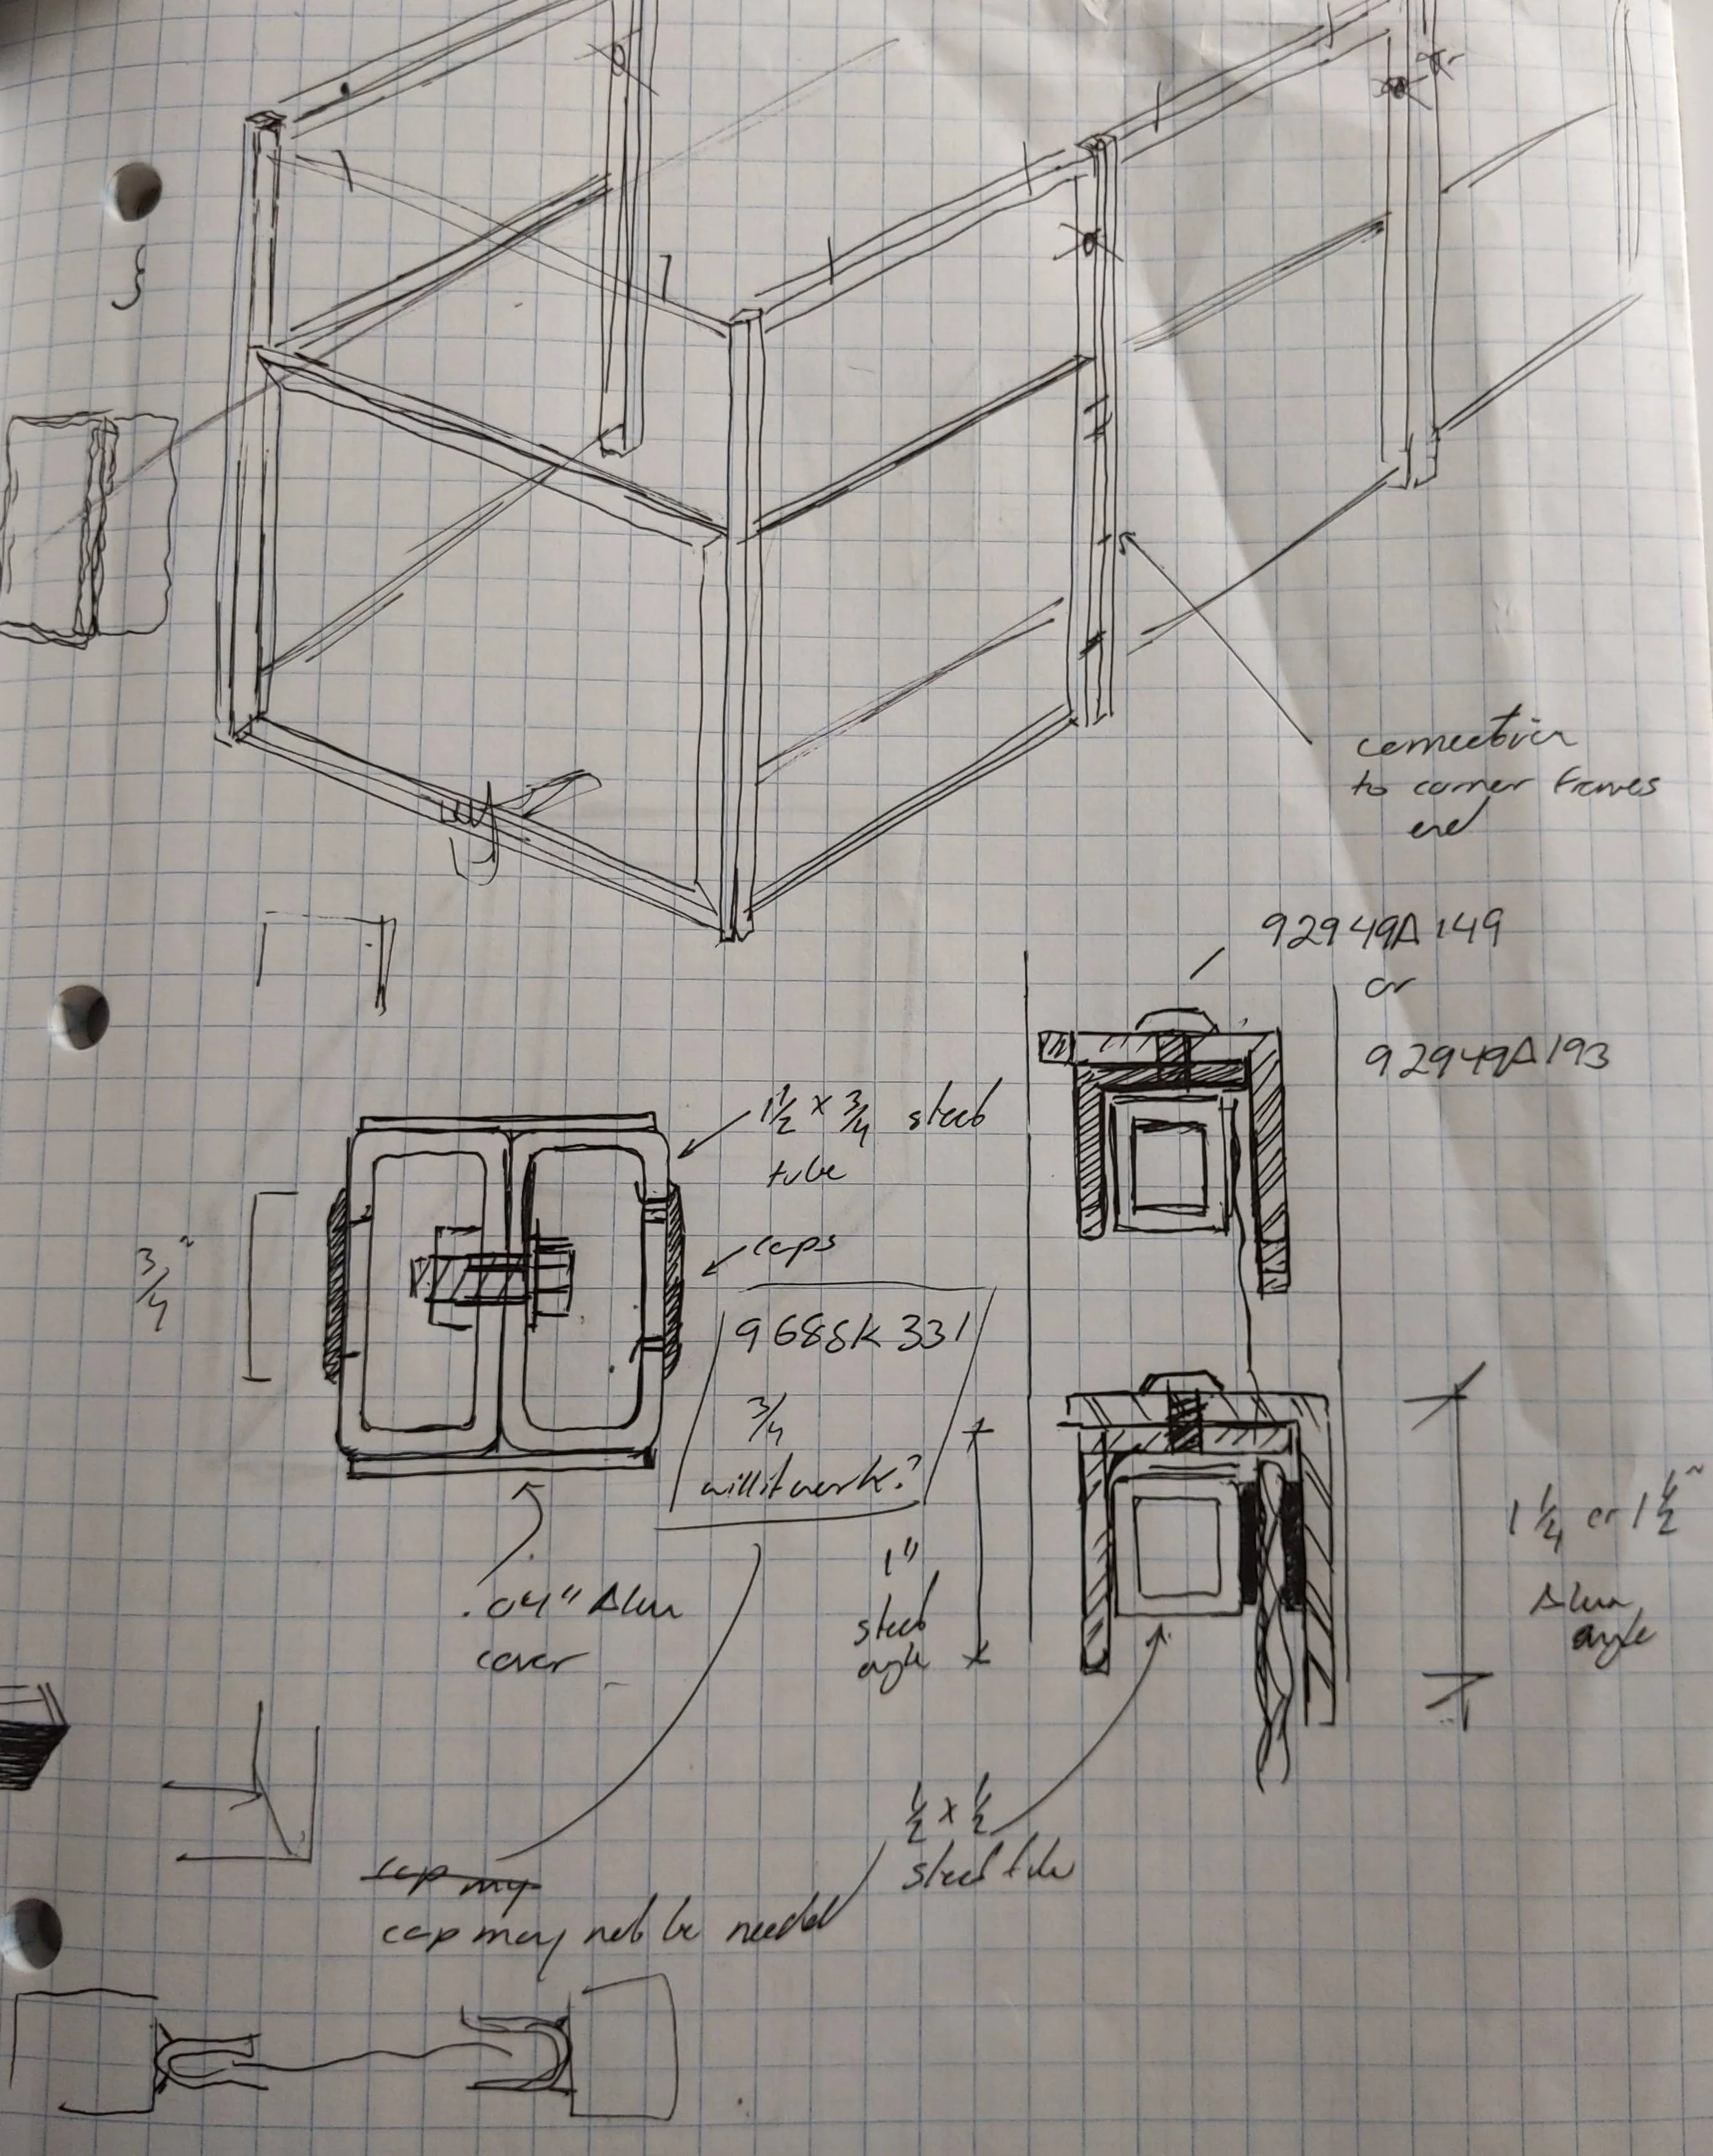 connection
to corner frames
end
92949A149
or
92949A193
1 1/2 x 3/4 steel
tube
3/4"
caps
9688K331
3/4
will it work?
1"
steel
angle
1 1/4 or 1 1/2"
Alum
angle
.04" Alum
cover
1/2 x 1/2
steel tube
cap my
cap may not be needed